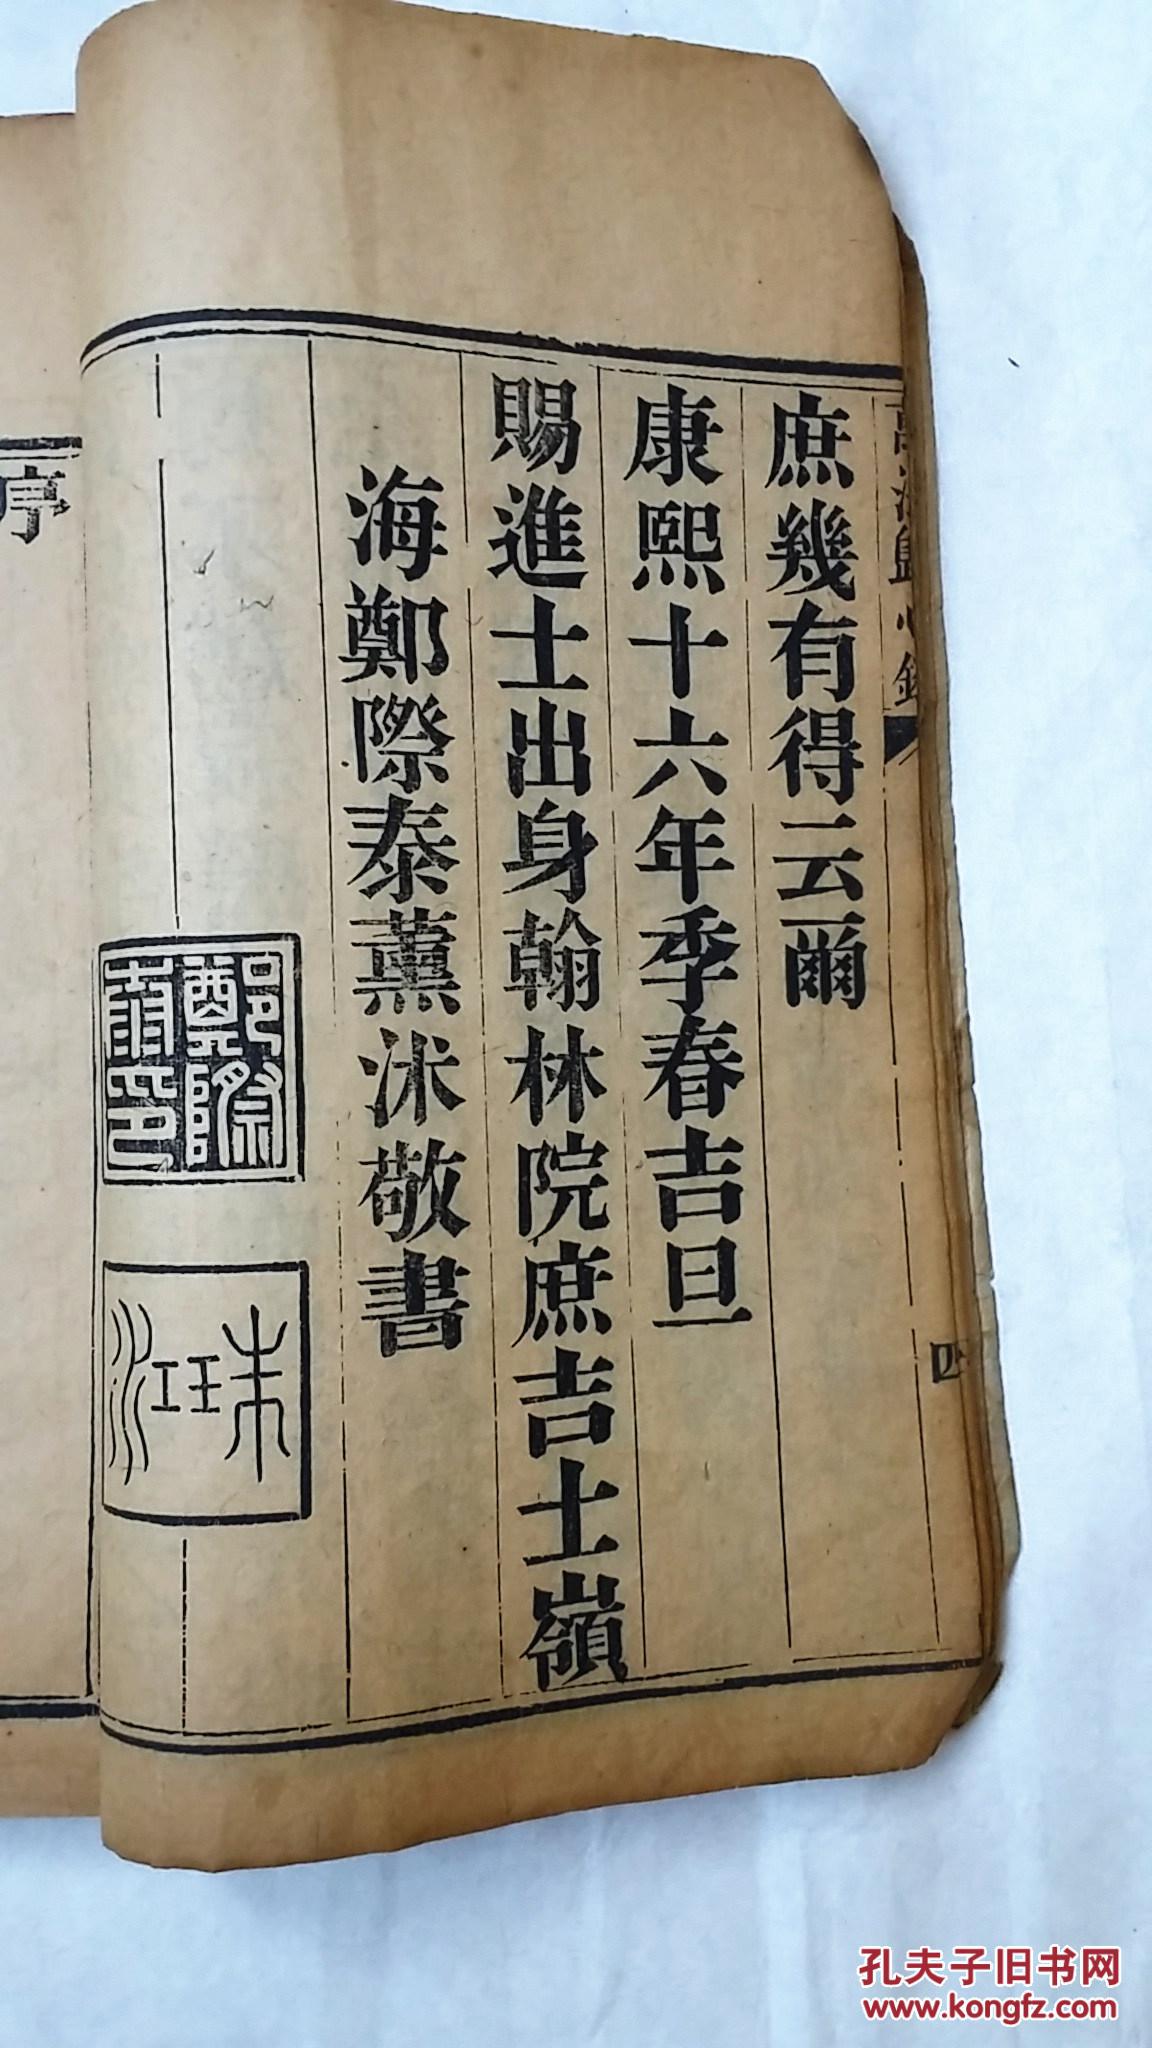 庶幾有得云爾
康熙十六年季春吉旦
賜進士出身翰林院庶吉士嶺
海鄭際泰薰沐敬書
鄭際泰印
珠江
四
序
孔夫子旧书网
www.kongfz.com